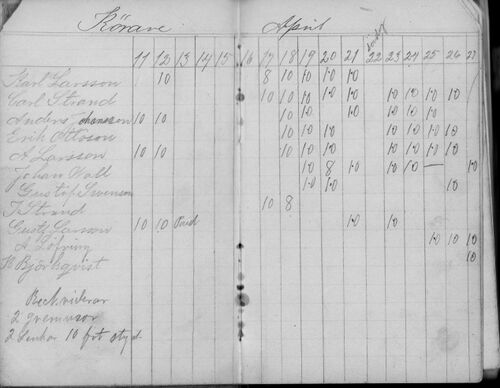 Körare April
11 12 13 14 15 16 17 18 19 20 21 22 23 24 25 26 27
Karl Larsson 10 8 10 10 10 10
Carl Strand 10 10 10 10 10 10 10 10 10
Anders Johansson 10 10 10 10 10 10 10
Erik Ottoson 10 10 10 10 10 10 10
A Larsson 10 10 10 10 10 10 10 10 10 10
Johan Wall 10 8 10 10 10 — 10
Gustaf Svenson 10 10 10
J Strand 10 8
Gust Larson 10 10 Paid 10 10
A Löfving 10 10 10
K Björkqvist 10
2
2 10 fot